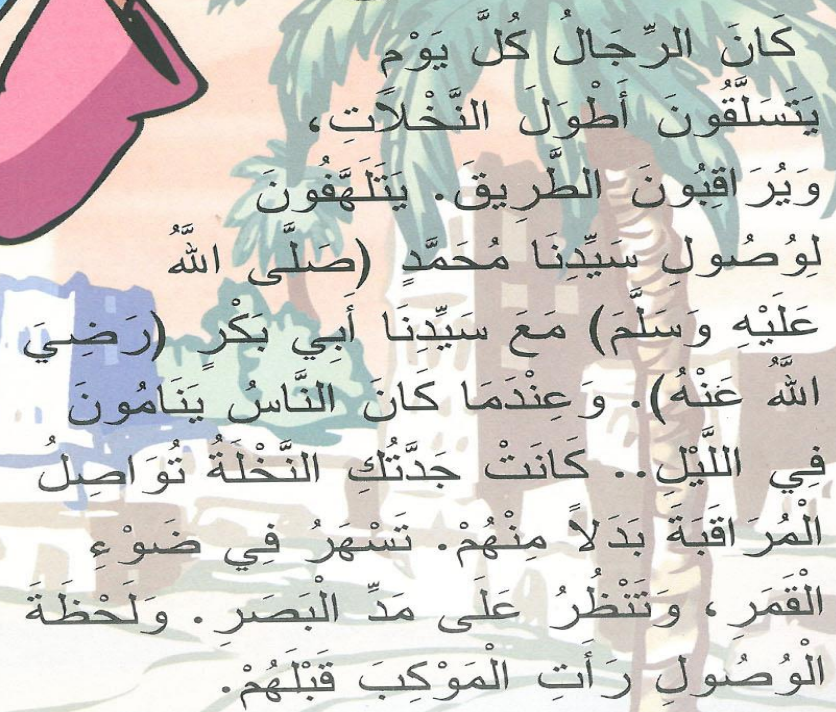 كَانَ الرِّجَالُ كُلَّ يَوْمٍ
يَتَسَلَّقُونَ أَطْوَلَ النَّخْلَاتِ،
وَيُرَاقِبُونَ الطَّرِيقَ. يَتَلَهَّفُونَ
لِوُصُولِ سَيِّدِنَا مُحَمَّدٍ (صَلَّى اللَّهُ
عَلَيْهِ وَسَلَّمَ) مَعَ سَيِّدِنَا أَبِي بَكْرٍ (رَضِيَ
اللَّهُ عَنْهُ). وَعِنْدَمَا كَانَ النَّاسُ يَنَامُونَ
فِي اللَّيْلِ.. كَانَتْ جَدَّتُكِ النَّخْلَةُ تُوَاصِلُ
الْمُرَاقَبَةَ بَدَلاً مِنْهُمْ. تَسْهَرُ فِي ضَوْءِ
الْقَمَرِ، وَتَنْظُرُ عَلَى مَدِّ الْبَصَرِ. وَلَحْظَةَ
الْوُصُولِ رَأَتِ الْمَوْكِبَ قَبْلَهُمْ.